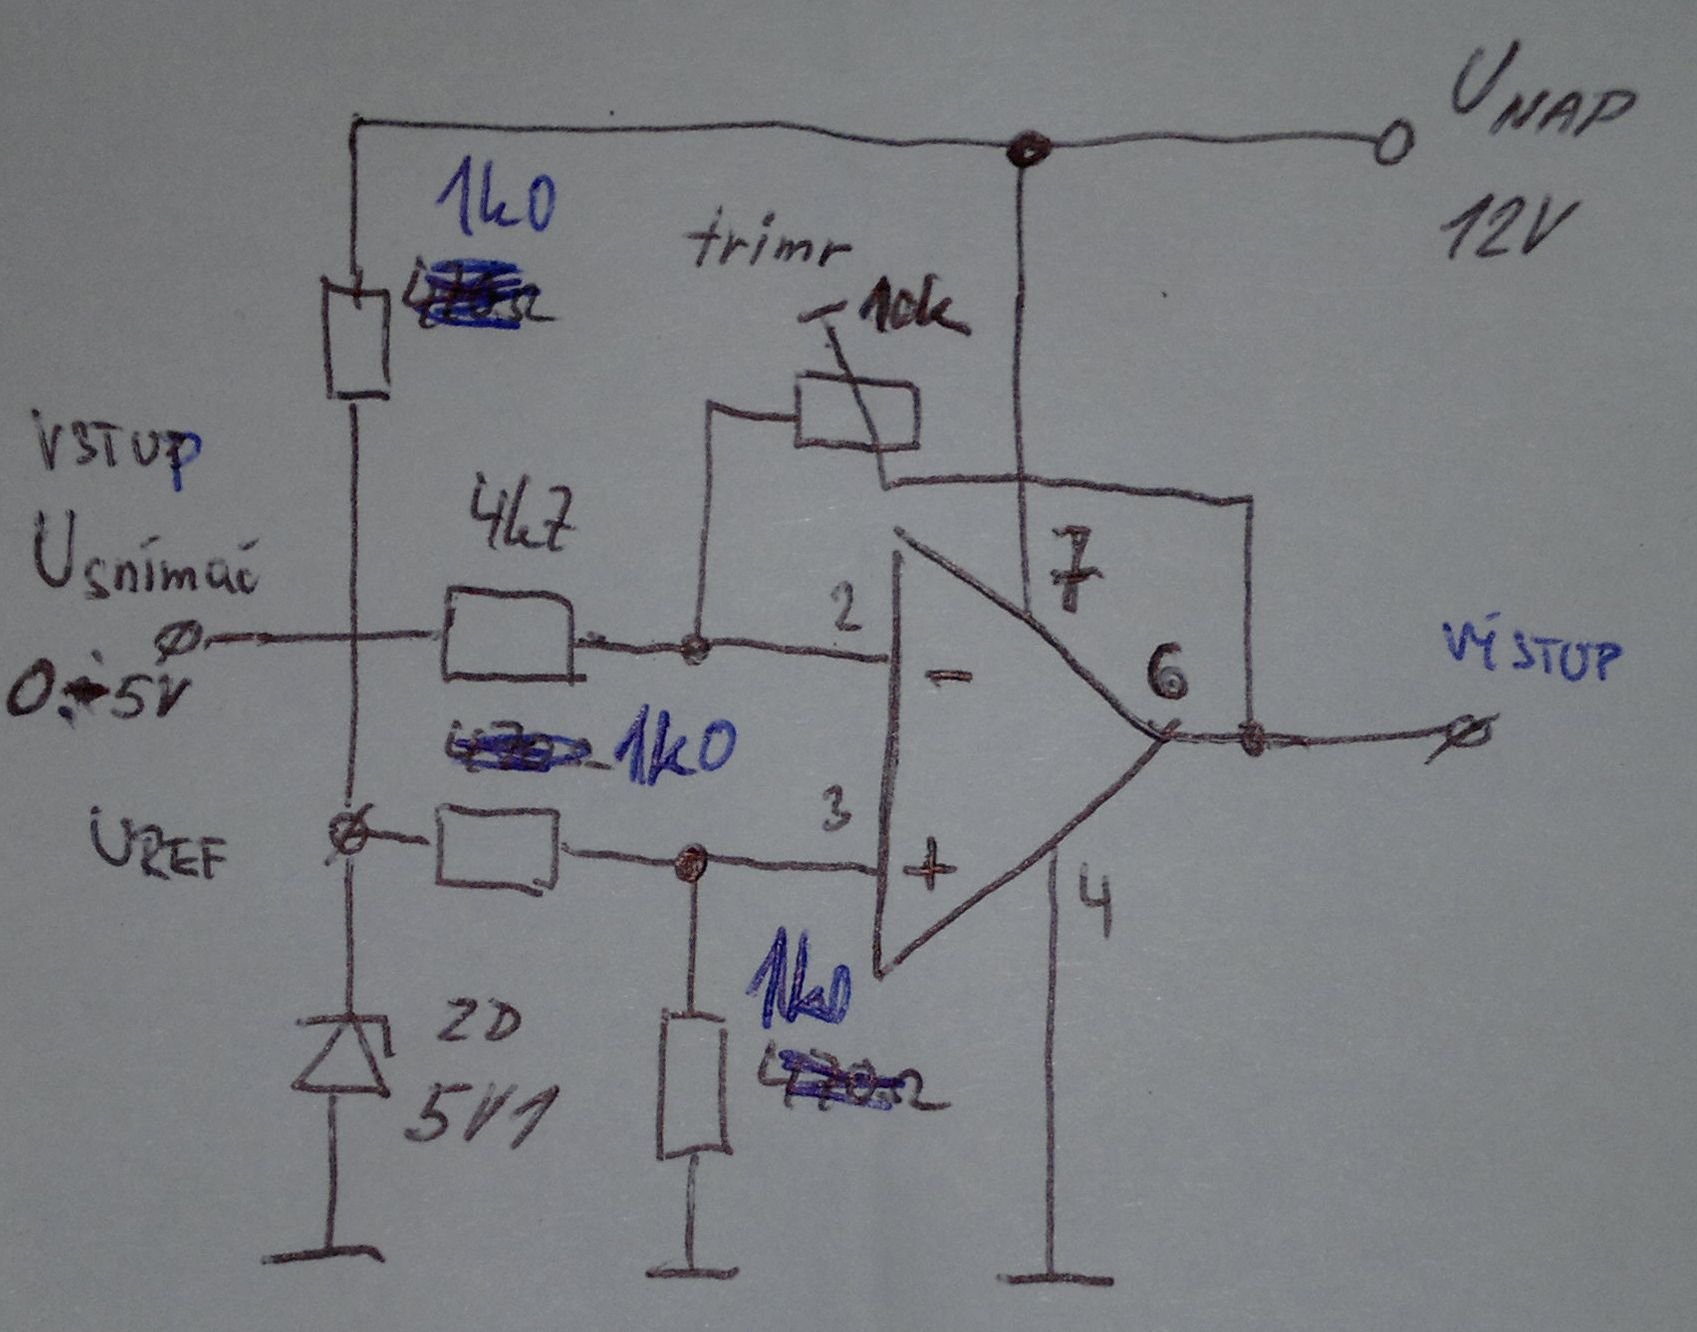 UNAP
12V
1k0
trimr
10k
VSTUP
Usnímač
0÷5V
4k7
2
7
6
VÝSTUP
1k0
3
UREF
-
+
4
1k0
ZD
5V1